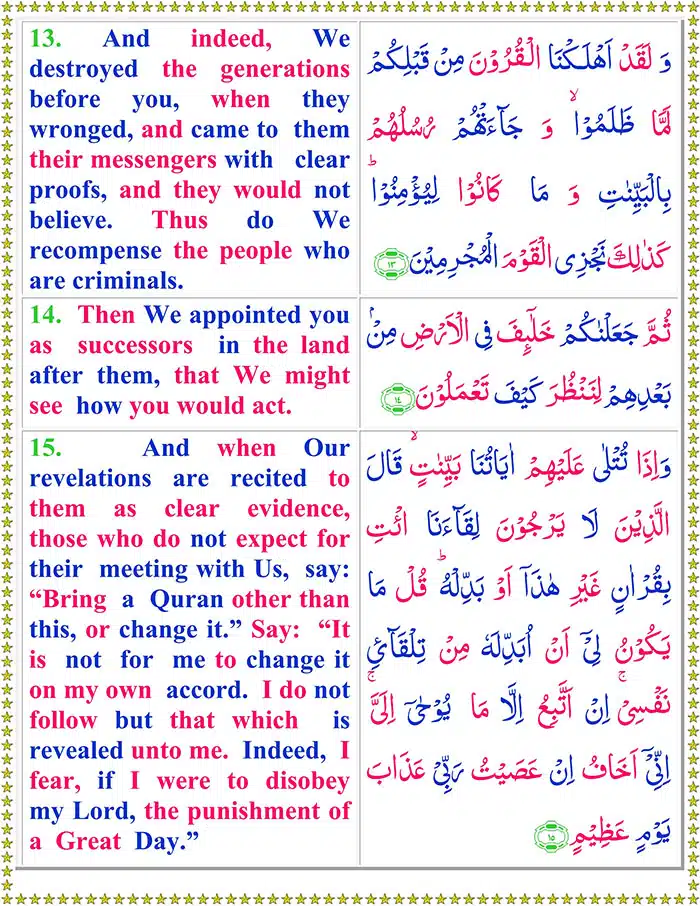 13. And indeed, We
destroyed the generations
before you, when they
wronged, and came to them
their messengers with clear
proofs, and they would not
believe. Thus do We
recompense the people who
are criminals.
وَ لَقَدْ اَهْلَكْنَا الْقُرُوْنَ مِنْ قَبْلِكُمْ
لَمَّا ظَلَمُوْاۙ وَ جَآءَتْهُمْ رُسُلُهُمْ
بِالْبَيِّنٰتِ وَ مَا كَانُوْا لِيُؤْمِنُوْاؕ
كَذٰلِكَ نَجْزِى الْقَوْمَ الْمُجْرِمِيْنَ ۱۳
14. Then We appointed you
as successors in the land
after them, that We might
see how you would act.
ثُمَّ جَعَلْنٰكُمْ خَلٰٓئِفَ فِى الْاَرْضِ مِنْۢ
بَعْدِهِمْ لِنَنْظُرَ كَيْفَ تَعْمَلُوْنَ ۱٤
15. And when Our
revelations are recited to
them as clear evidence,
those who do not expect for
their meeting with Us, say:
“Bring a Quran other than
this, or change it.” Say: “It
is not for me to change it
on my own accord. I do not
follow but that which is
revealed unto me. Indeed, I
fear, if I were to disobey
my Lord, the punishment of
a Great Day.”
وَاِذَا تُتْلٰى عَلَيْهِمْ اٰيَاتُنَا بَيِّنٰتٍۙ قَالَ
الَّذِيْنَ لَا يَرْجُوْنَ لِقَآءَنَا ائْتِ
بِقُرْاٰنٍ غَيْرِ هٰذَاۤ اَوْ بَدِّلْهُؕ قُلْ مَا
يَكُوْنُ لِىْۤ اَنْ اُبَدِّلَهٗ مِنْ تِلْقَآئِ
نَفْسِىْۚ اِنْ اَتَّبِعُ اِلَّا مَا يُوْحٰۤى اِلَىَّۚ
اِنِّىْۤ اَخَافُ اِنْ عَصَيْتُ رَبِّىْ عَذَابَ
يَوْمٍ عَظِيْمٍ ۱٥